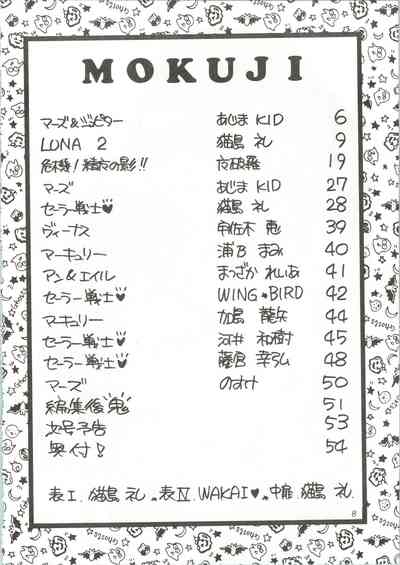 MOKUJI
マーズ&ジュピター あじま KID 6
LUNA 2 猫島 礼 9
危機! の影!! 夜破羅 19
マーズ あじま KID 27
セーラー戦士♥ 猫島 礼 28
ヴィーナス 宇佐木 恵 39
マーキュリー 浦B まみ 40
アン&エイル まつざか れいあ 41
セーラー戦士♥ WING★BIRD 42
マーキュリー 加島 龍矢 44
セーラー戦士♥ 河井 和樹 45
セーラー戦士♥ 藤倉 幸弘 48
マーズ のすけ 50
編集後鬼 51
次号予告 53
奥付! 54
表I. 猫島 礼. 表IV. WAKAI♥. 中扉 猫島 礼.
8
Ghosts